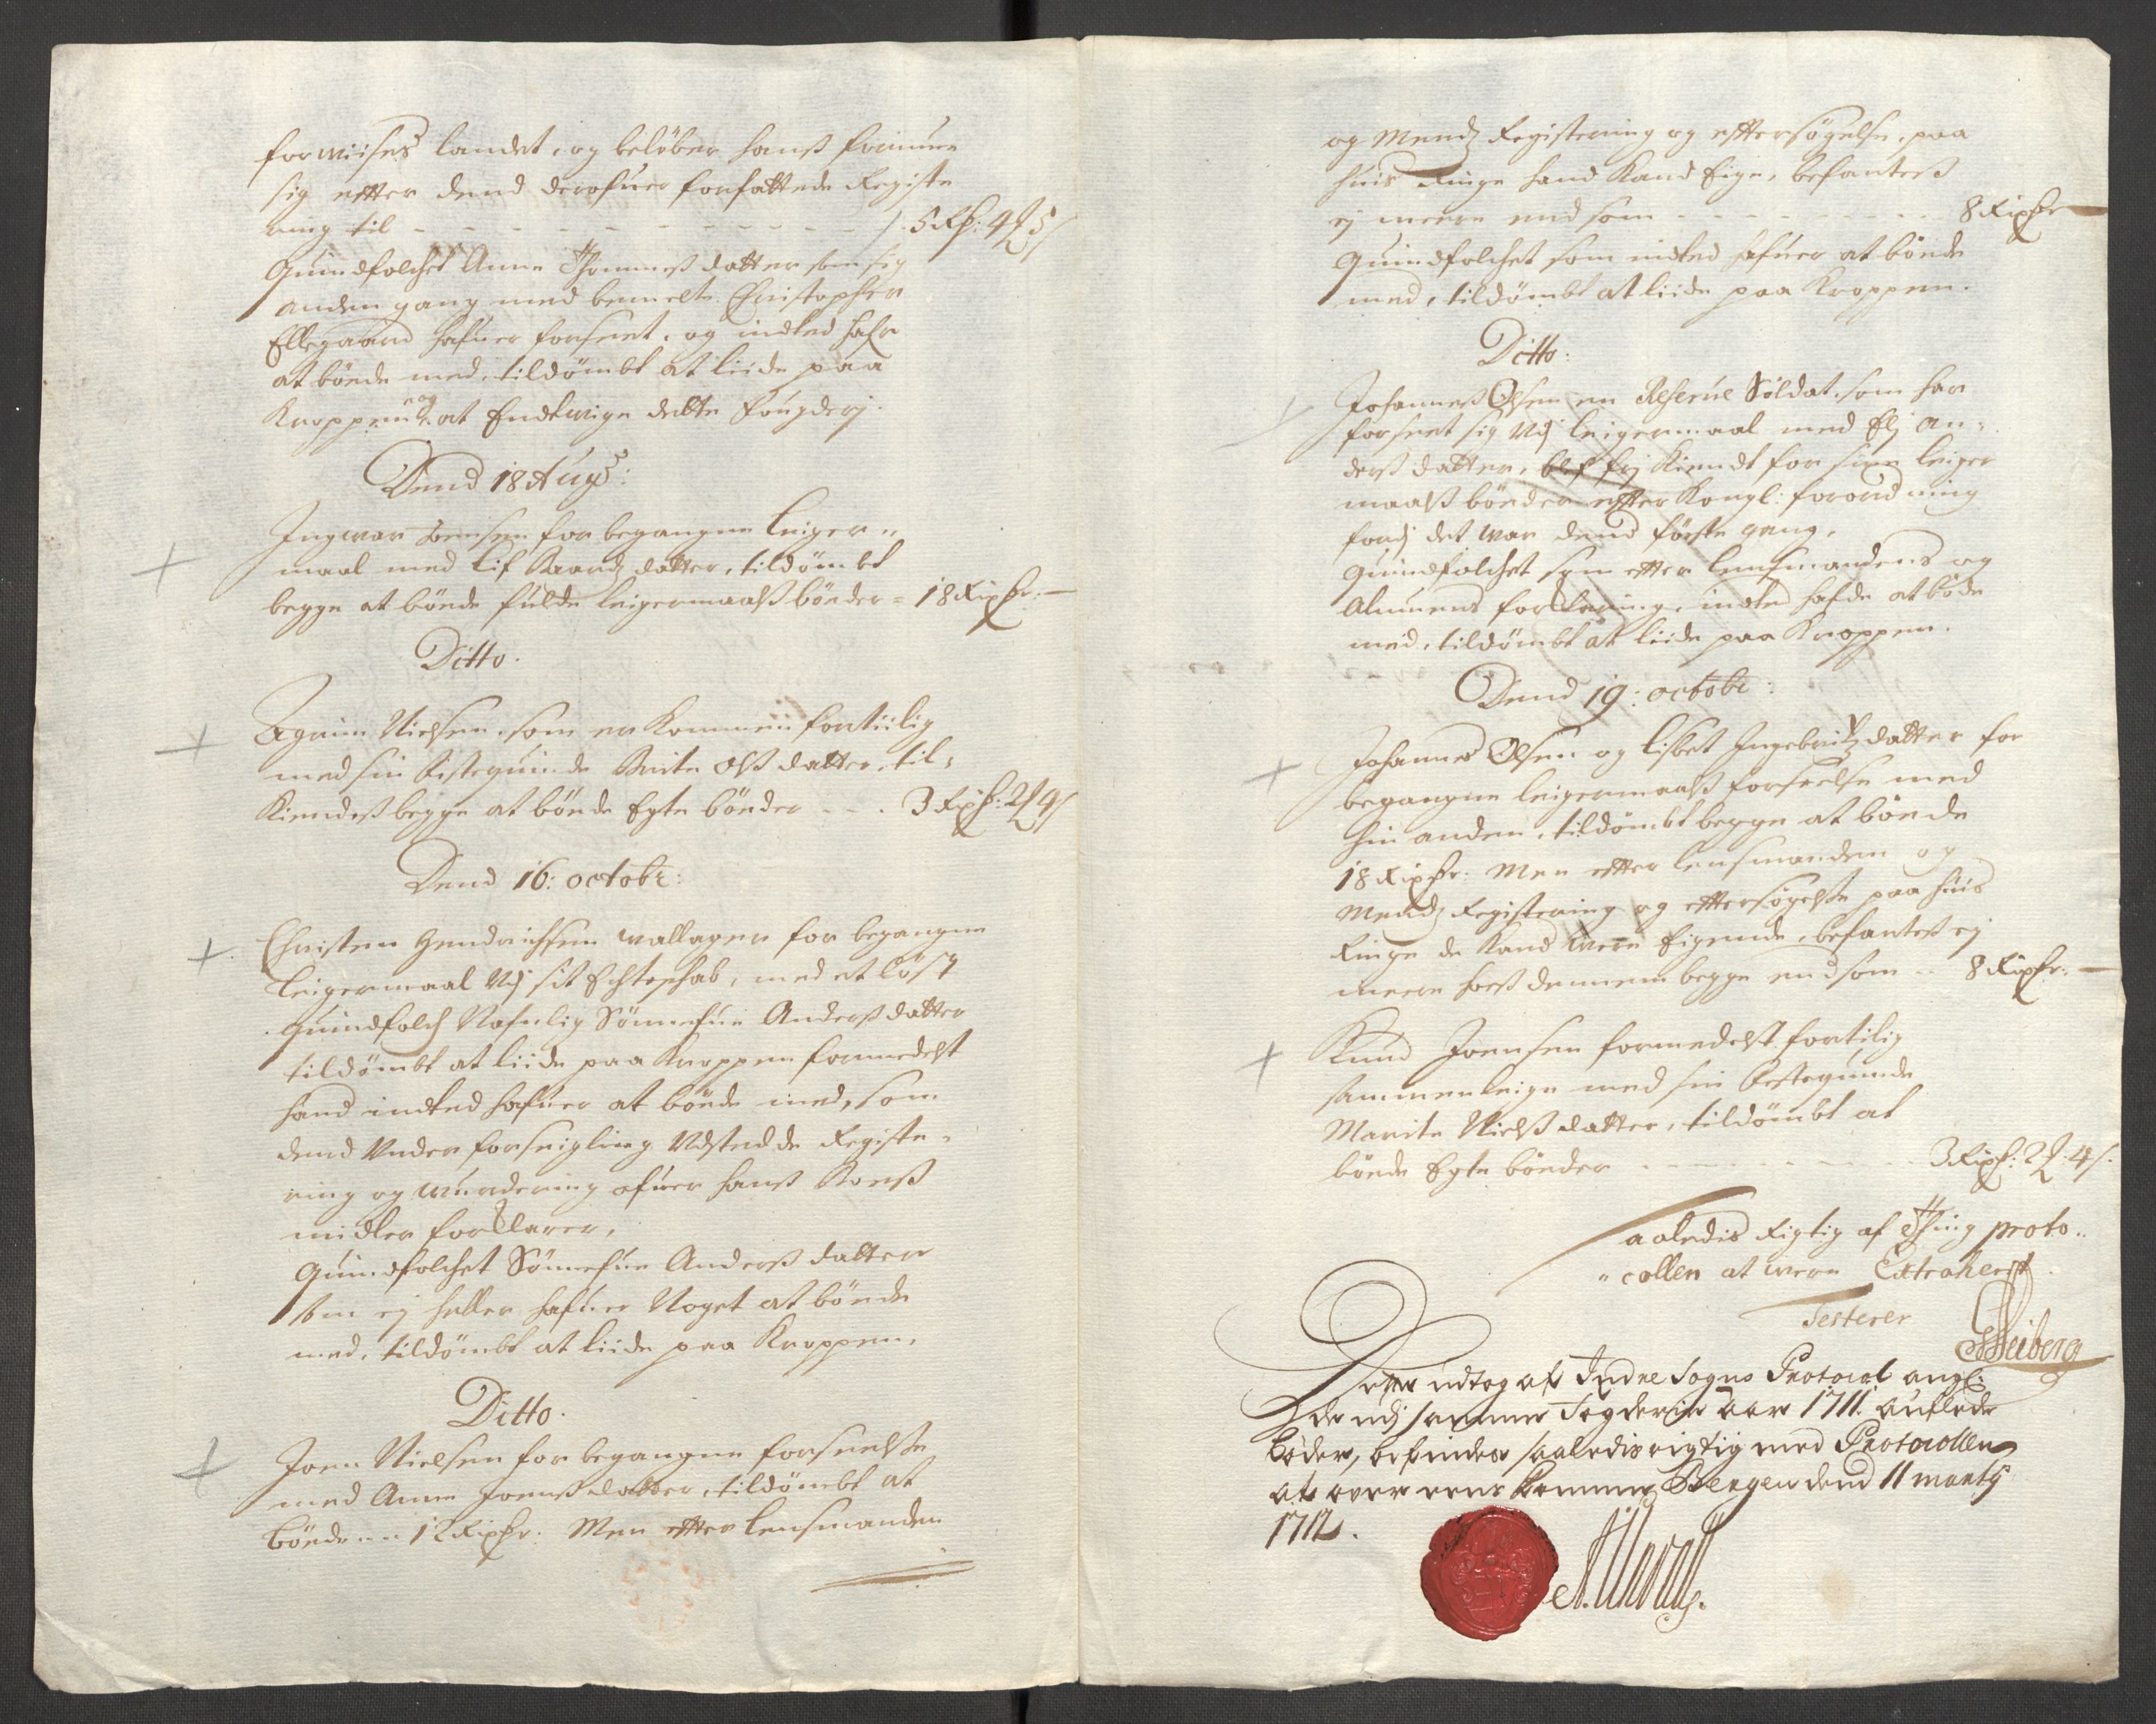 forwiises landet, og beløber hanß formue
sig efter dend derofuer forfattede Registe
ring til - - - - - - - - - - 5 Rdr: 4 ₰ 5 s
Quindfolchet Anne Thommeß datter som sig
anden gang med bemelte Christopher
Ellegaard hafuer forseet, og indted hafr
at bøede med, tildømbt at liide paa
Kroppen og at Endtwige dette Fougderj.
Dend 18 Aug:
Ingwar Joensen for begangne leiger-
maal med Lif Baards datter, tildømbt
begge at bøede fulde leigermaalß bøeder = 18 Rixdr. —
Ditto.
Agrim Nielsen, som er kommen fortiilig
med sin festequinde Brite Olß datter, til-
kiendeß begge at bøede Egte bøeder - - - 3 Rixdr: 2 ₰ 4 s
Dend 16: octobr:
Christen Hendrichsen wallagen for begangne
leigermaal Udj sit Echteschab, med et løst
quindfolch Nafnlig Sønnefue Anderß datter
tildømbt at liide paa Kroppen formedelst
hand indted hafuer at bøede med, som
dend under forseigling Udstedde Registe-
ring og wurdering ofuer hanß Boeß
midler forklarer,
Quindfolchet Sønnefue Anderß datter
som ej heller hafuer Noget at bøede
med, tildømbt at liide paa Kroppen,
Ditto.
Joen Nielsen for begangne forseelse
med Anne Joenß datter, tildømbt at
bøede -- 12 Rixdr: Men efter lensmanden
og Mends Registering og eftersøgelse, paa
huis Ringe hand kand Eige, befanteß
ej meere end som - - - - - - - 8 Rixdr —
Quindfolchet som indted hafuer at bøede
med, tildømbt at liide paa Kroppen.
Ditto:
Johanneß Olsen en Reserue Soldat, som har
forseet sig Udj leigermaal med Elj An-
derß datter, blef frj kiendt for sine leiger
maalß bøeder efter Kongl: forordning
fordj det war dend første gang,
Quindfolchet som efter lensmandens og
Almuens forklaring, indted hafde at bøde
med, tildømbt at liide paa Kroppen.
Dend 19: octobr:
Johannes Olsen og Lisbet Ingebritz datter for
begangne leigermaalß forseelse med
hin anden, tildømbt begge at bøede
18 Rixdr: Men efter lensmanden og
Mends Registering og eftersøgelse paa huis
Ringe de kand were Eigende, befanteß ej
meere hoeß dennem begge end som - 8 Rixdr: —
Knud Joensen formedelst fortilig
sammenleige med sin festequinde
Marite Nielß datter, tildømbt at
bøede Egte bøeder - - - - - - - 3 Rixdr: 2 ₰ 4 s.
Saaledis Rigtig af Thing proto-
collen at were Extraherit
Testerer
Heiberg
Dette udtog af Indre Sogns Protocol angl:
de udj samme Fogderie Aar 1711 Auflede
bøder, befindes saaledis rigtig med Protocollen
at over eens komme, Bergen dend 11 martij
1712.